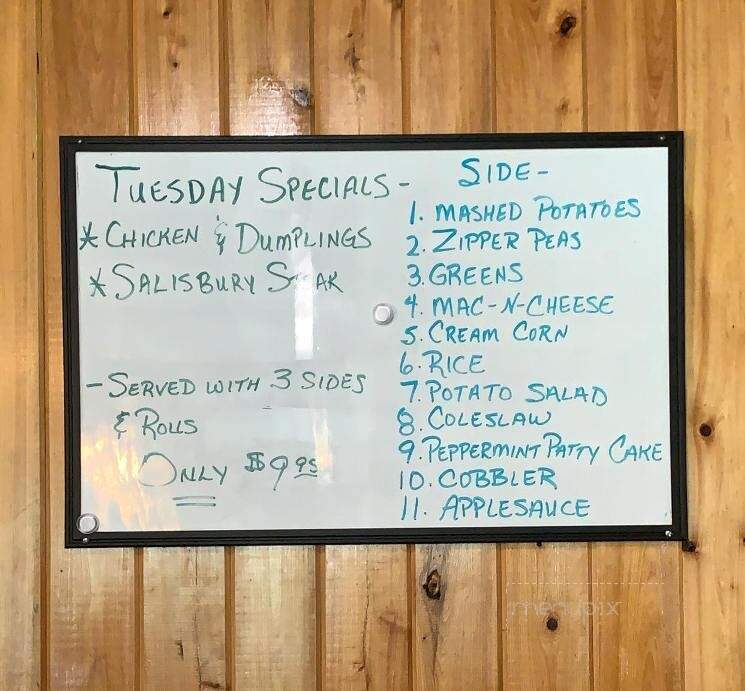 TUESDAY SPECIALS -
* CHICKEN & DUMPLINGS
* SALISBURY STEAK
- SERVED WITH 3 SIDES
& ROLLS
ONLY $9.95
SIDE -
1. MASHED POTATOES
2. ZIPPER PEAS
3. GREENS
4. MAC-N-CHEESE
5. CREAM CORN
6. RICE
7. POTATO SALAD
8. COLESLAW
9. PEPPERMINT PATTY CAKE
10. COBBLER
11. APPLESAUCE
menupix